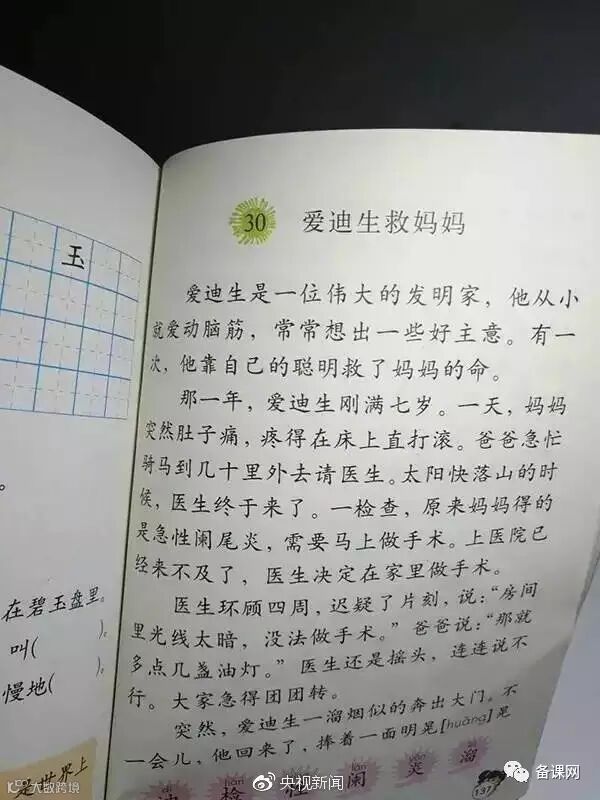 玉
。
在碧玉盘里。
叫( )。
慢地( )。
是世界上
30 爱迪生救妈妈
爱迪生是一位伟大的发明家，他从小
就爱动脑筋，常常想出一些好主意。有一
次，他靠自己的聪明救了妈妈的命。
那一年，爱迪生刚满七岁。一天，妈妈
突然肚子痛，疼得在床上直打滚。爸爸急忙
骑马到几十里外去请医生。太阳快落山的时
候，医生终于来了。一检查，原来妈妈得的
是急性阑尾炎，需要马上做手术。上医院已
经来不及了，医生决定在家里做手术。
医生环顾四周，迟疑了片刻，说：“房间
里光线太暗，没法做手术。”爸爸说：“那就
多点几盏油灯。”医生还是摇头，连连说不
行。大家急得团团转。
突然，爱迪生一溜烟似的奔出大门。不
一会儿，他回来了，捧着一面明晃[huǎng]晃
dí jiǎn lán
迪 检 性 阑 炎 溜
137
大数跨境
央视新闻
备课网